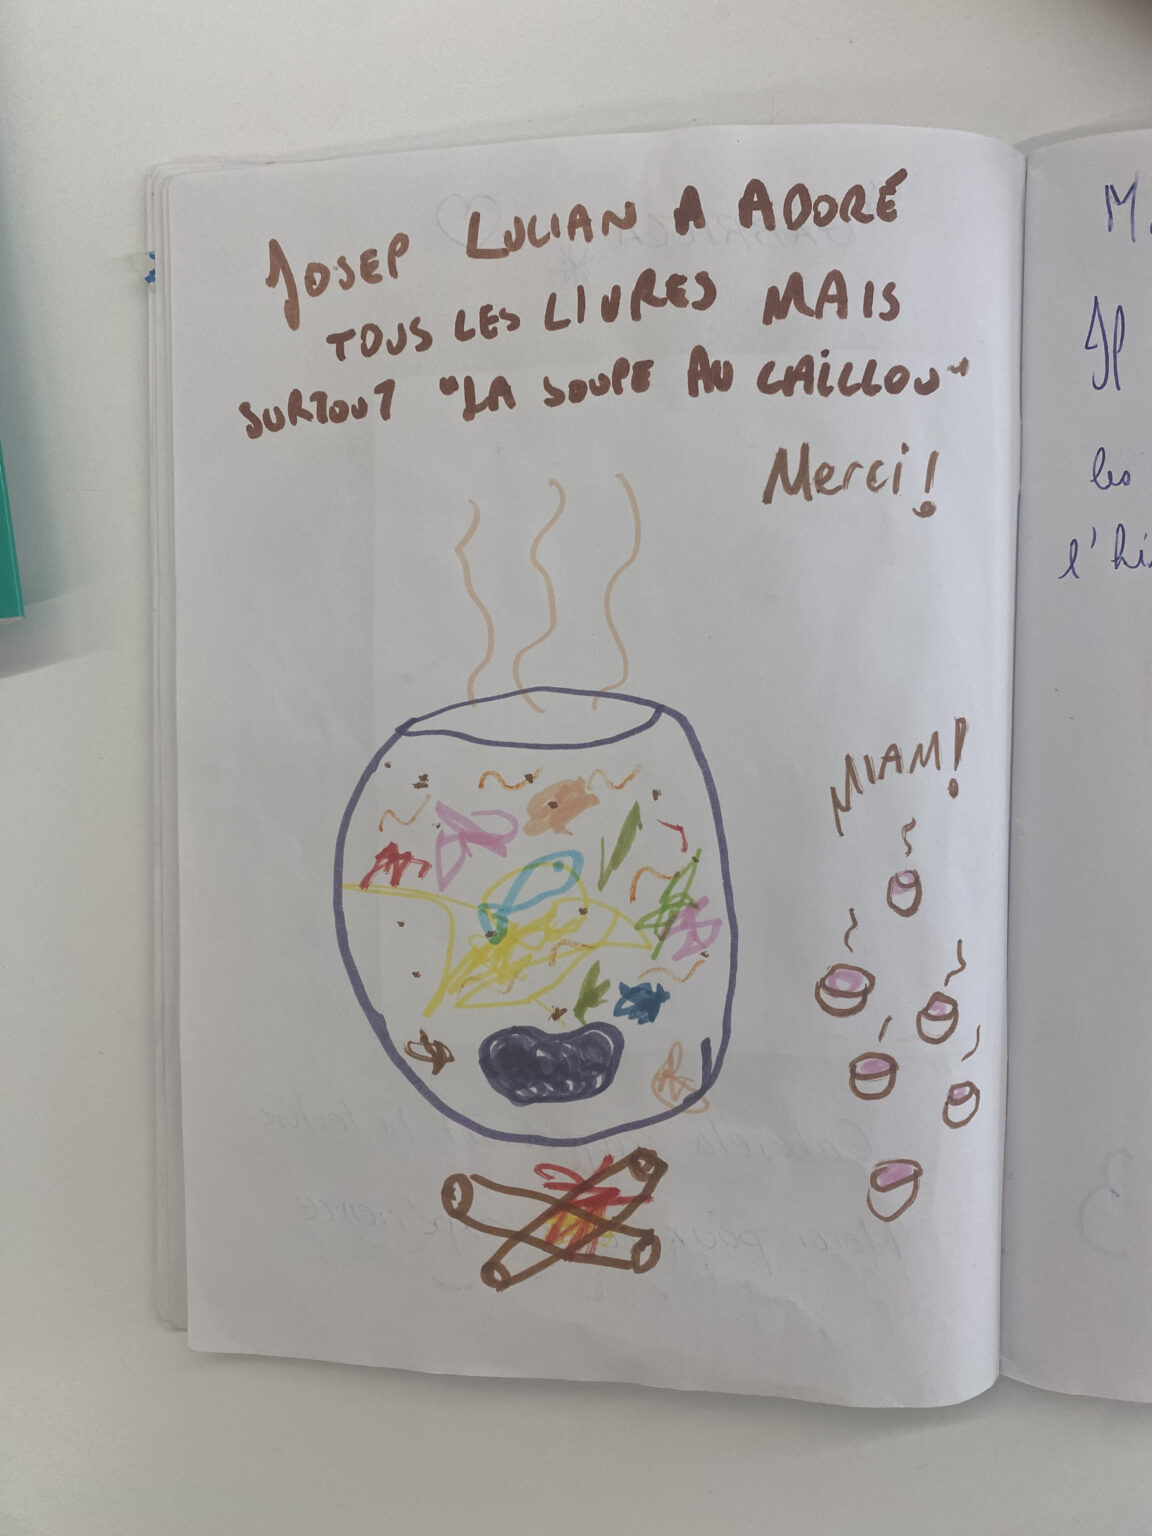 JOSEP LUCIAN A ADORÉ
TOUS LES LIVRES MAIS
SURTOUT "LA SOUPE AU CAILLOU"
Merci !
MIAM !
Il
les